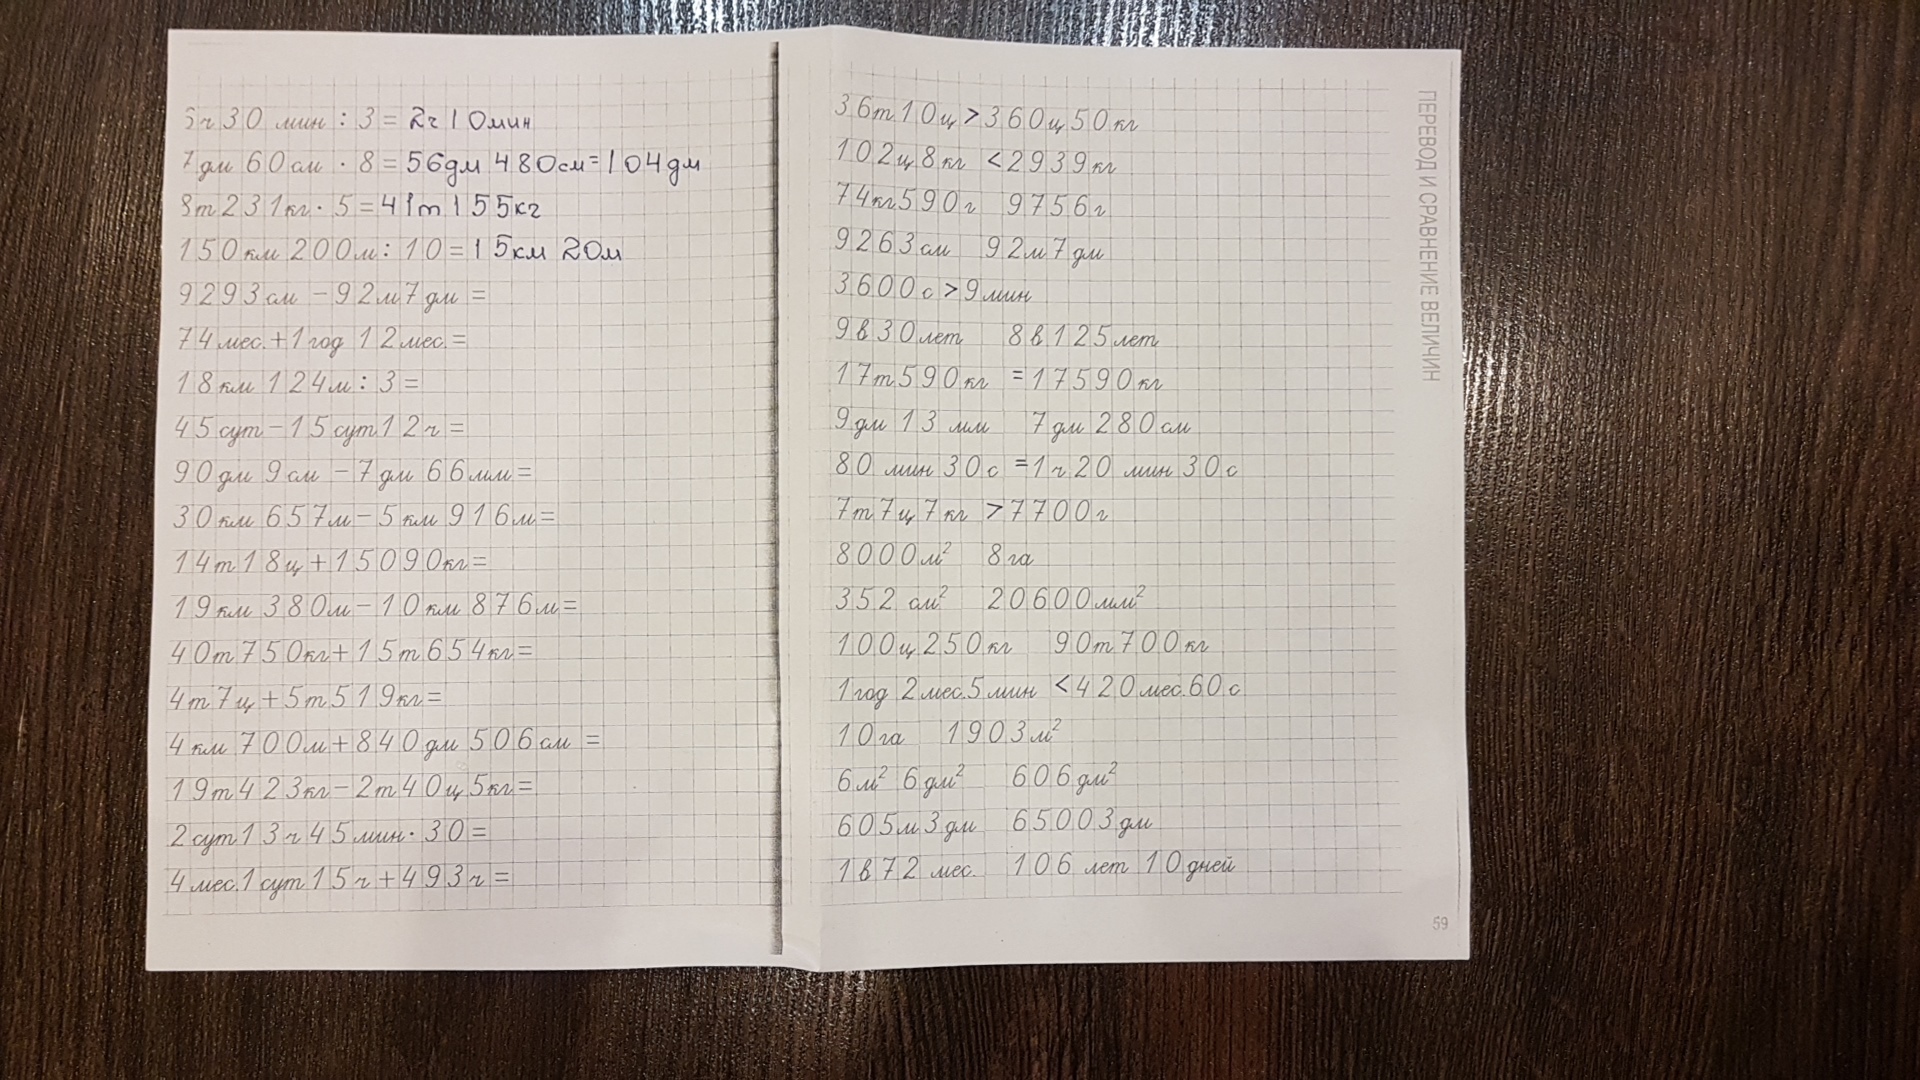 6ч 30 мин : 3 = 2ч 10мин
7 дм 60 см · 8 = 56дм 480см = 104дм
8т 231кг · 5 = 41т 155кг
150 км 200м : 10 = 15км 20м
9293 см - 92м 7 дм =
74 мес. + 1 год 12 мес. =
18 км 124 м : 3 =
45 сут - 15 сут 12 ч =
90 дм 9 см - 7 дм 66 мм =
30 км 657 м - 5 км 916 м =
14 т 18 ц + 15090 кг =
19 км 380 м - 10 км 876 м =
40 т 750 кг + 15 т 654 кг =
4 т 7 ц + 5 т 519 кг =
4 км 700 м + 840 дм 506 см =
19 т 423 кг - 2 т 40 ц 5 кг =
2 сут 13 ч 45 мин · 30 =
4 мес. 1 сут 15 ч + 493 ч =
36 т 10 ц > 360 ц 50 кг
102 ц 8 кг < 2939 кг
74 кг 590 г 9756 г
9263 см 92 м 7 дм
3600 с > 9 мин
9 в 30 лет 8 в 125 лет
17 т 590 кг = 17590 кг
9 дм 13 мм 7 дм 280 см
80 мин 30 с = 1 ч 20 мин 30 с
7 т 7 ц 7 кг > 7700 г
8000 м² 8 га
352 см² 20600 мм²
100 ц 250 кг 90 т 700 кг
1 год 2 мес. 5 мин < 420 мес. 60 с
10 га 1903 м²
6 м² 6 дм² 606 дм²
605 м 3 дм 65003 дм
1 в 72 мес. 106 лет 10 дней
ПЕРЕВОД И СРАВНЕНИЕ ВЕЛИЧИН
59